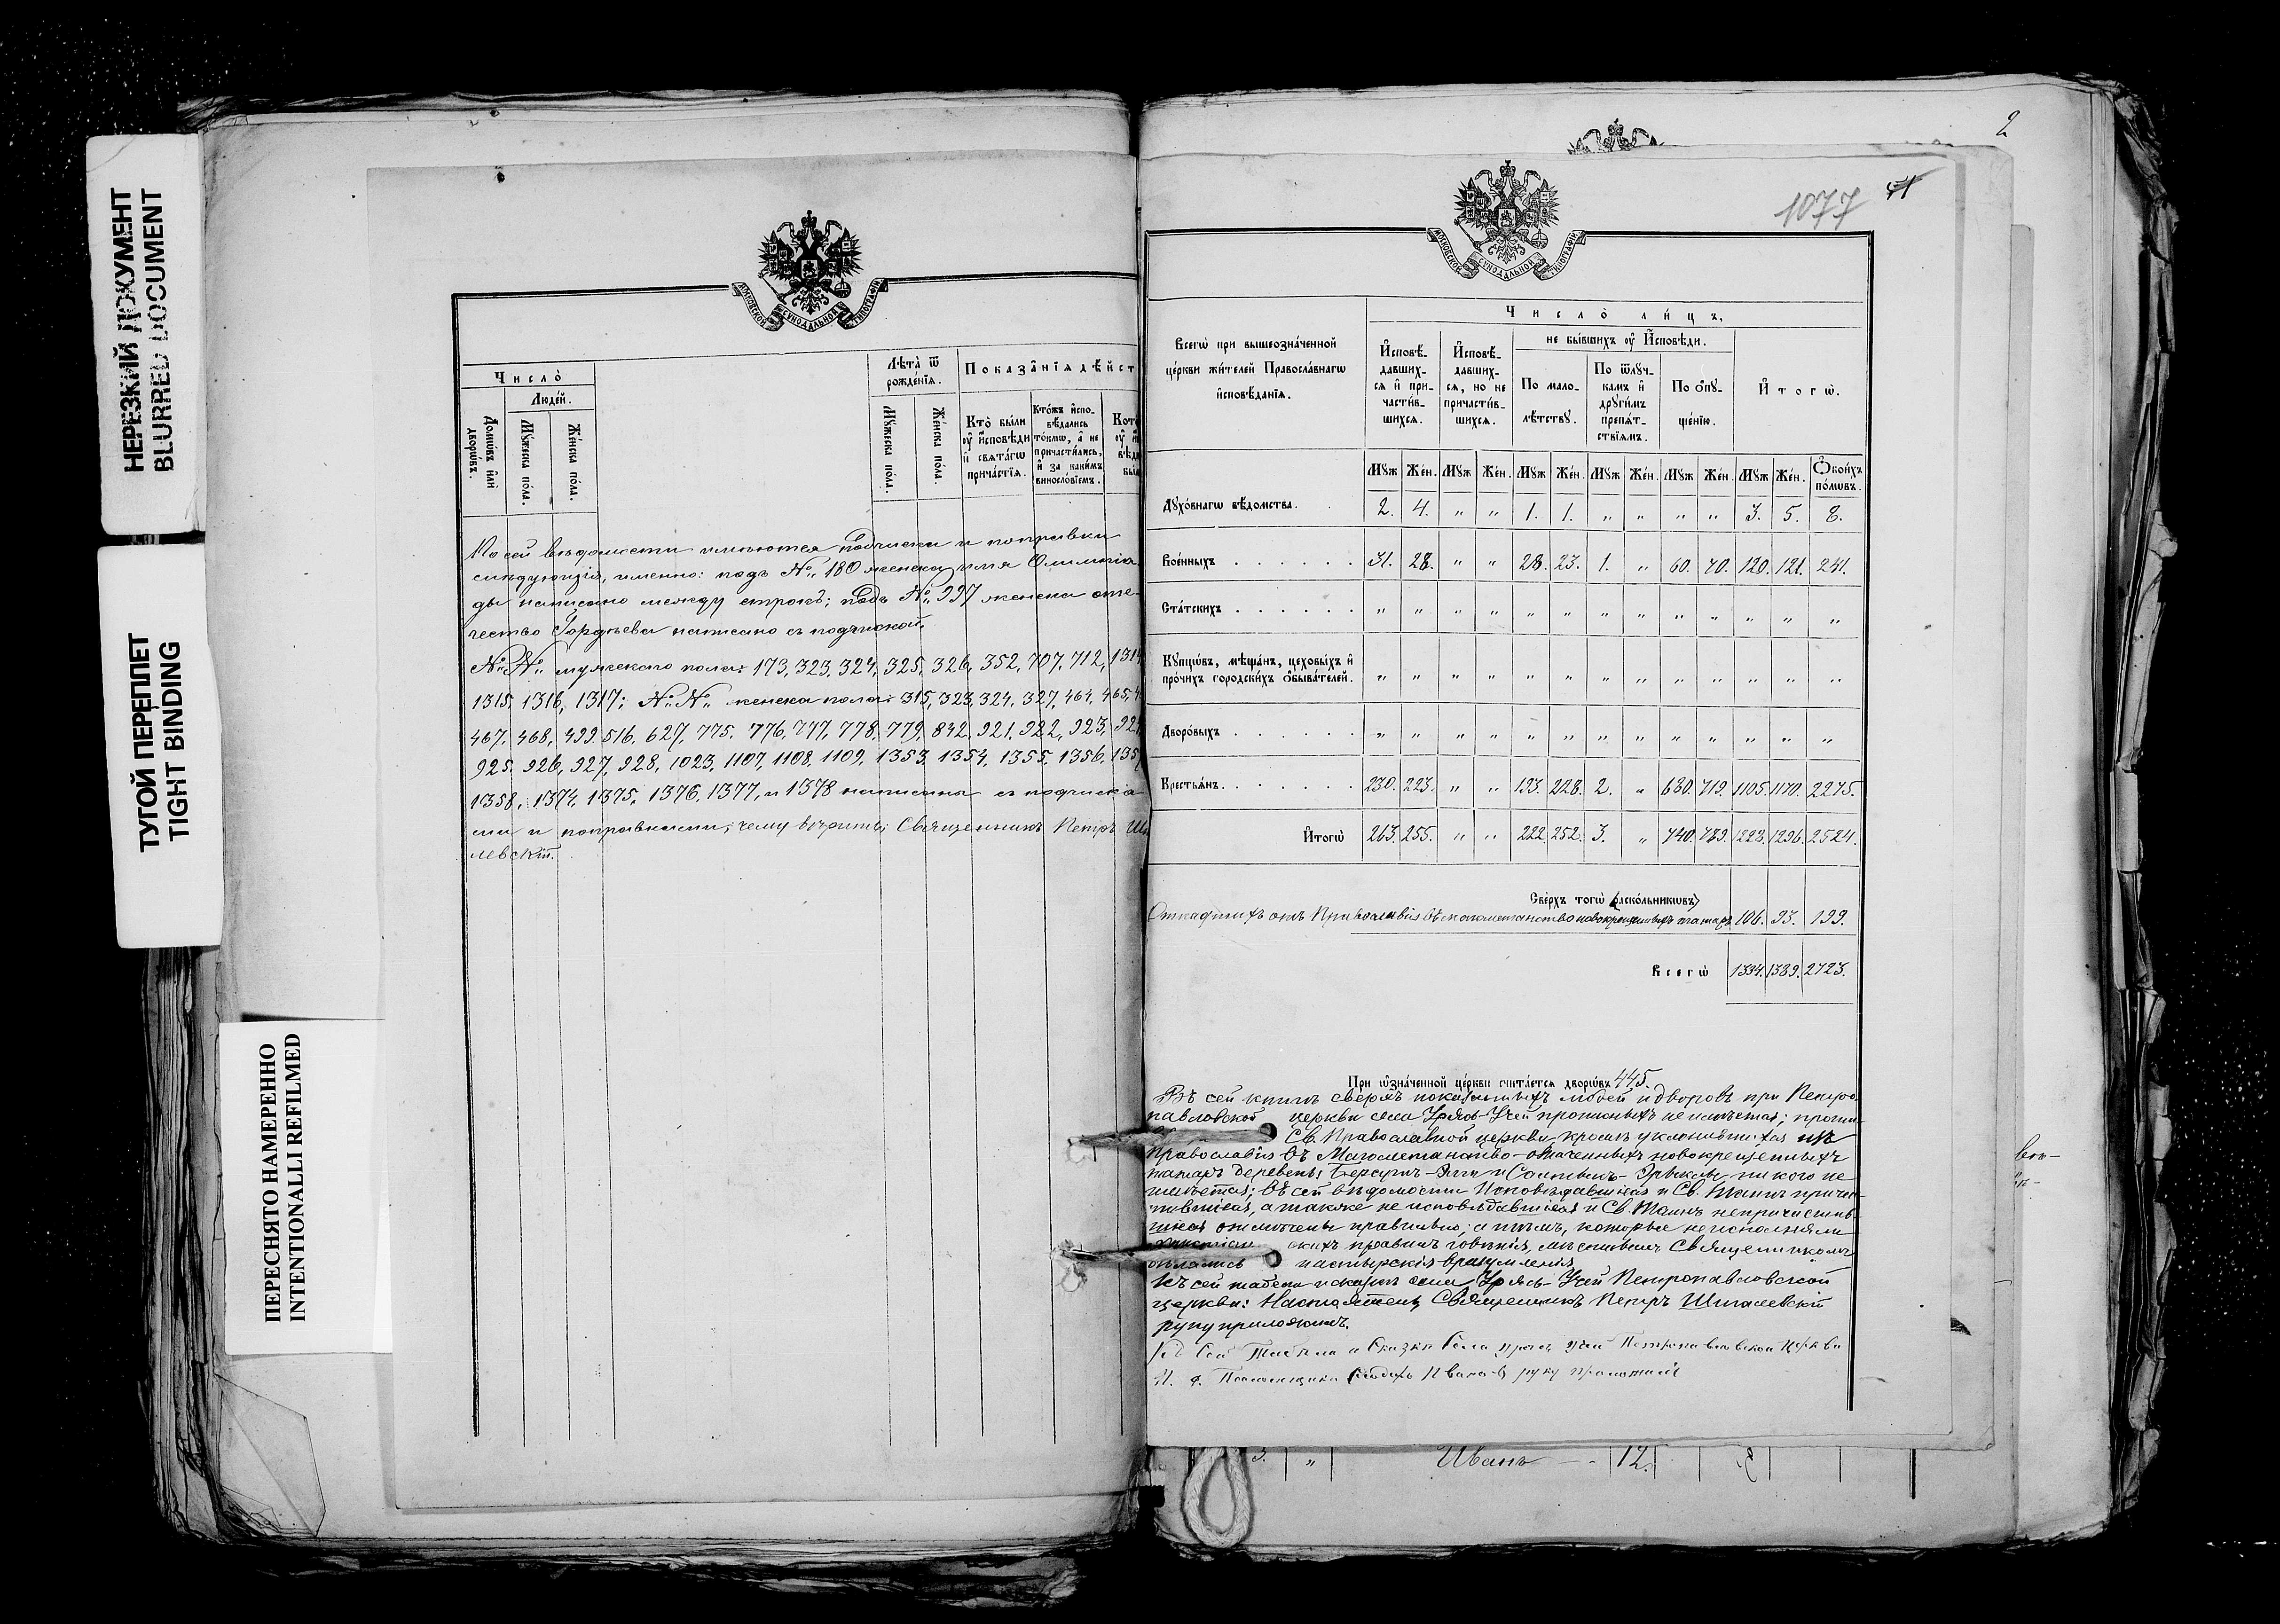 НЕРЕЗКИЙ ДОКУМЕНТ
BLURRED DOCUMENT
ТУГОЙ ПЕРЕПЛЕТ
TIGHT BINDING
ПЕРЕСНЯТО НАМЕРЕННО
INTENTIONALLI REFILMED
МОСКОВСКОЙ СУНОДАЛЬНОЙ ТИПОГРАФІИ
Число̀
Людей.
Домѡвъ или дворѡвъ.
Мꙋжеска пола.
Женска пола.
Лѣта ѿ рожденїя.
Мꙋжеска пола.
Женска пола.
Показанїя дѣйст
Кто были ᲂу исповѣди и святагѡ причастїя.
Ктожъ исповѣдались токмѡ, а не причастились, и за какимъ винословїемъ.
По сей вѣдомости имѣются подчистки и поправки
слѣдующія, именно: подъ №, 180 женска имя Олимпіа-
ды написано между строкъ; подъ №, 997 женска оте-
чество Гордѣева написано съ подчисткой.
№№ мужескаго пола: 173, 323, 324, 325, 326, 352, 707, 712, 1314
1315, 1316, 1317; №№ женска пола: 315, 323, 324, 327, 464, 465,
467, 468, 499, 516, 627, 775, 776, 777, 778, 779, 842, 921, 922, 923,
925, 926, 927, 928, 1023, 1107, 1108, 1109, 1353, 1354, 1355, 1356, 1357
1358, 1374, 1375, 1376, 1377, и 1378 написаны съ подчистка-
ми и поправками, чему вѣрить; Священникъ Петръ
левскій.
2
1077
МОСКОВСКОЙ СУНОДАЛЬНОЙ ТИПОГРАФІИ
Всегѡ при вышеозначенной церкви жителей Православнагѡ исповѣданїя.
Число лицъ.
Исповѣдавшихся и причастившихся.
Исповѣдавшихся, но не причастившихся.
не бывшихъ ᲂу Исповѣди.
По малолѣтствꙋ.
По ѿлꙋчкамъ и дрꙋгимъ препятствїямъ.
По ѡпꙋщенїю.
Итогѡ.
Мꙋж Жен. Мꙋж Жен. Мꙋж Жен. Мꙋж Жен. Мꙋж Жен. Мꙋж Жен. Ѻбоихъ половъ.
Дꙋховнагѡ вѣдомства. 2. 4. " " 1. 1. " " " " 3. 5. 8.
Военныхъ . . . . . . 31. 28. " " 28. 23. 1. " 60. 70. 120. 121. 241.
Статскихъ . . . . . . " " " " " " " " " " " " "
Кꙋпцѡвъ, мѣщанъ, цеховыхъ и прочихъ городскихъ ѡбывателей. " " " " " " " " " " " " "
Дворовыхъ . . . . . . " " " " " " " " " " " " "
Крестьянъ. . . . . . . 230. 223. " " 193. 228. 2. " 680. 719. 1105. 1170. 2275.
Итогѡ 263. 255. " " 222. 252. 3. " 740. 789. 1228. 1296. 2524.
Сверхъ тогѡ раскольникѡвъ
Отпадшихъ отъ Православія въ магометанство новокрещенныхъ татаръ 106. 93. 199.
Всегѡ 1334. 1389. 2723.
При ѡзначенной церкви считается дворѡвъ 445.
Въ сей книгѣ сверхъ показанныхъ людей и дворовъ при Петро-
павловской церкви села Урясь-Учей прописныхъ не имѣется;
Св. Православной церкви, кромѣ уклонившихся изъ
Православія въ Магометанство означенныхъ новокрещенныхъ
татаръ деревень: Берсутъ и никого не
имѣется; въ сей вѣдомости Исповѣдавшіеся и Св. Таинъ прича-
тившіеся, а также не исповѣдавшіеся и Св. Таинъ непричастив-
шіеся отмѣчены правильно; а тѣмъ, которые не исполняли
скихъ правилъ говѣнія, мѣстнымъ Священникомъ
дѣлались пастырскія вразумленія.
Къ сей табели и сказкѣ села Урясь-Учей Петропавловской
церкви: Настоятель Священникъ Петръ
руку приложилъ.
Сей Табели и Сказки Села Урясь Учей Петропавловской Церкви
И. д. Псаломщика Иванов руку приложил
Иванъ — 12.